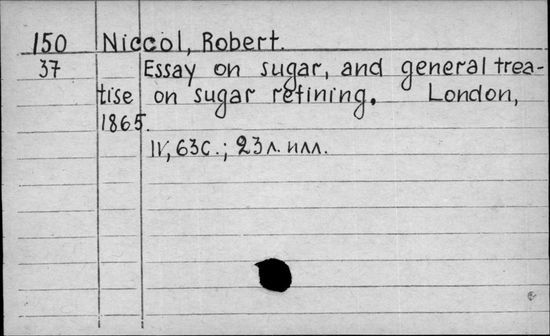 150 Niccol, Robert.
37 Essay on sugar, and general trea-
tise on sugar refining. London,
1865.
IV, 63с.; 23л. илл.